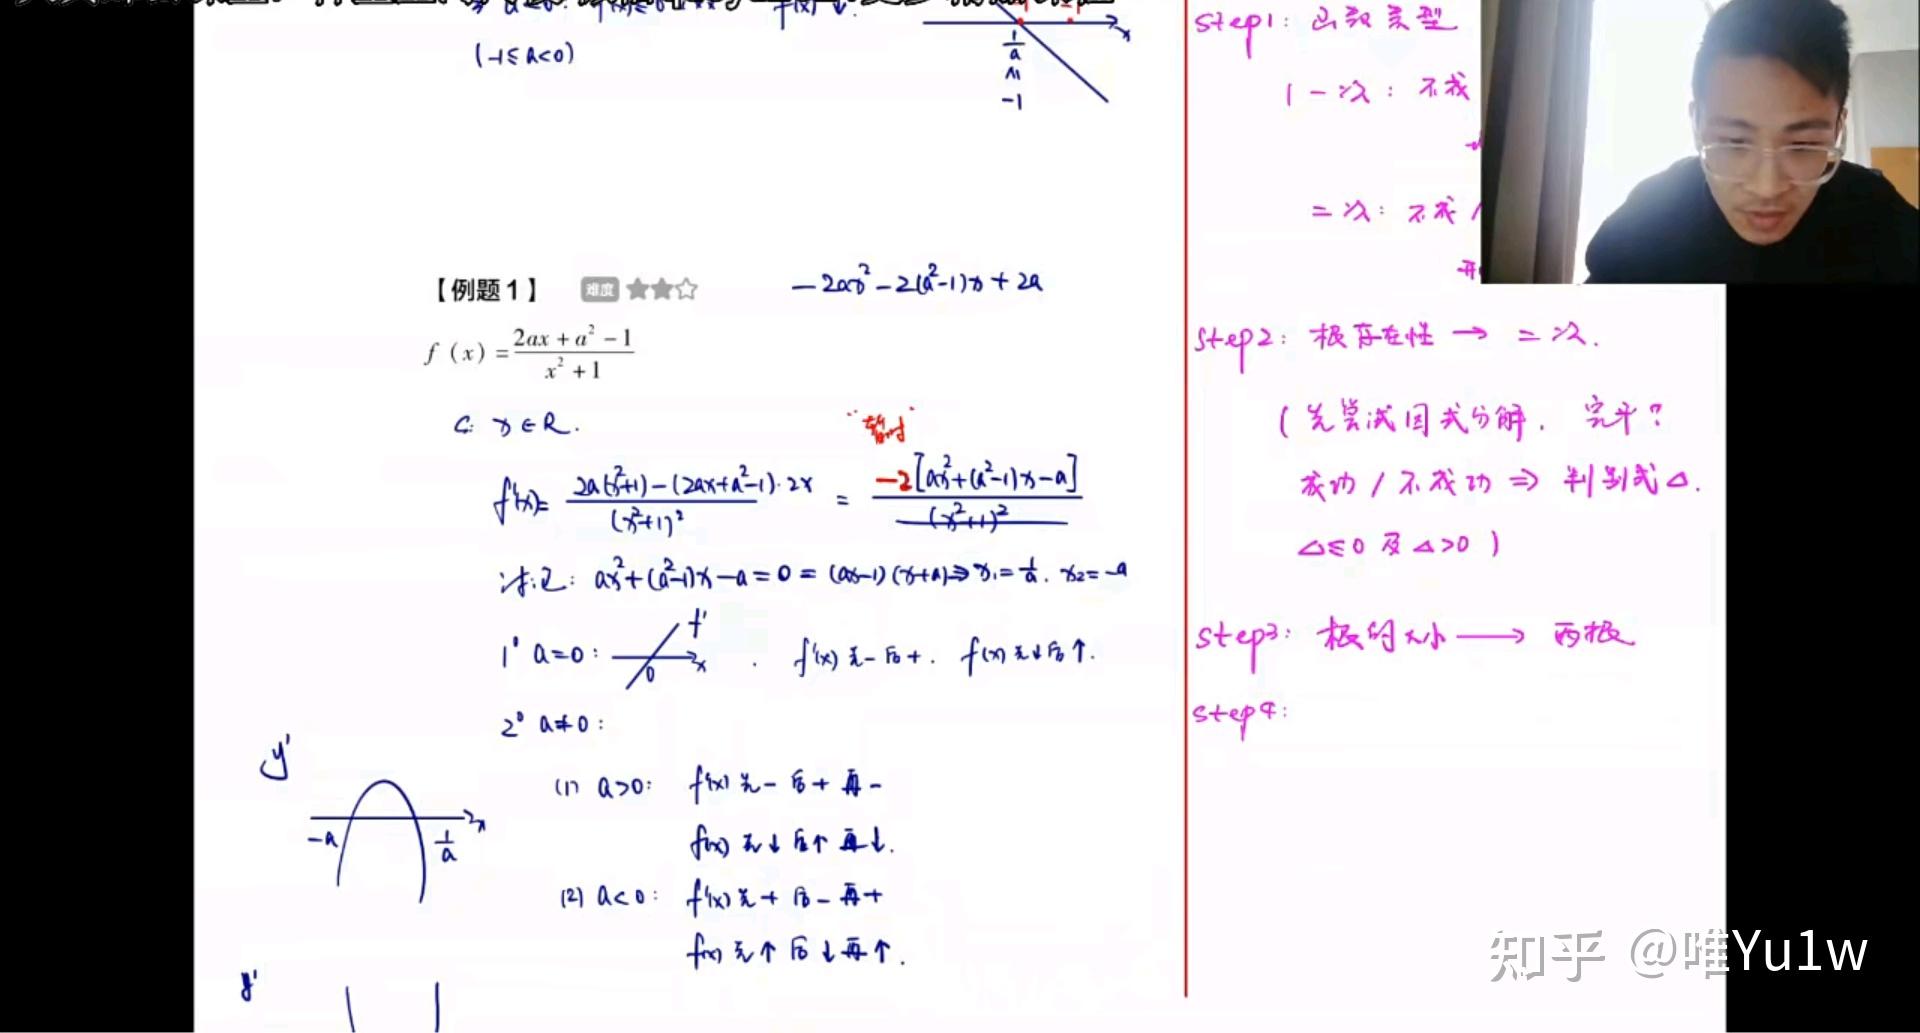 (-1≤a<0)
1/a
-1
【例题1】 难度
-2ax²-2(a²-1)x+2a
f (x) = (2ax + a² - 1)/(x² + 1)
x∈R.
"暂时"
f'(x)= (2a(x²+1)-(2ax+a²-1)·2x)/(x²+1)² = -2[ax²+(a²-1)x-a]/(x²+1)²
ax²+(a²-1)x-a=0=(ax-1)(x+a)⇒x₁=1/a. x₂=-a
1° a=0: f' x 0 . f'(x)先-后+. f(x)先↓后↑.
2° a≠0:
y'
-a 1/a x
(1) a>0: f'(x)先-后+再-
f(x)先↓后↑再↓.
(2) a<0: f'(x)先+后-再+
f(x)先↑后↓再↑.
y'
step1: 函数类型
一次: 不成
二次: 不成
step2: 根存在性→二次.
(先尝试因式分解. 完平?
成功/不成功⇒判别式Δ.
Δ≤0及Δ>0)
step3: 根的大小→两根
step4:
知乎 @唯Yu1w